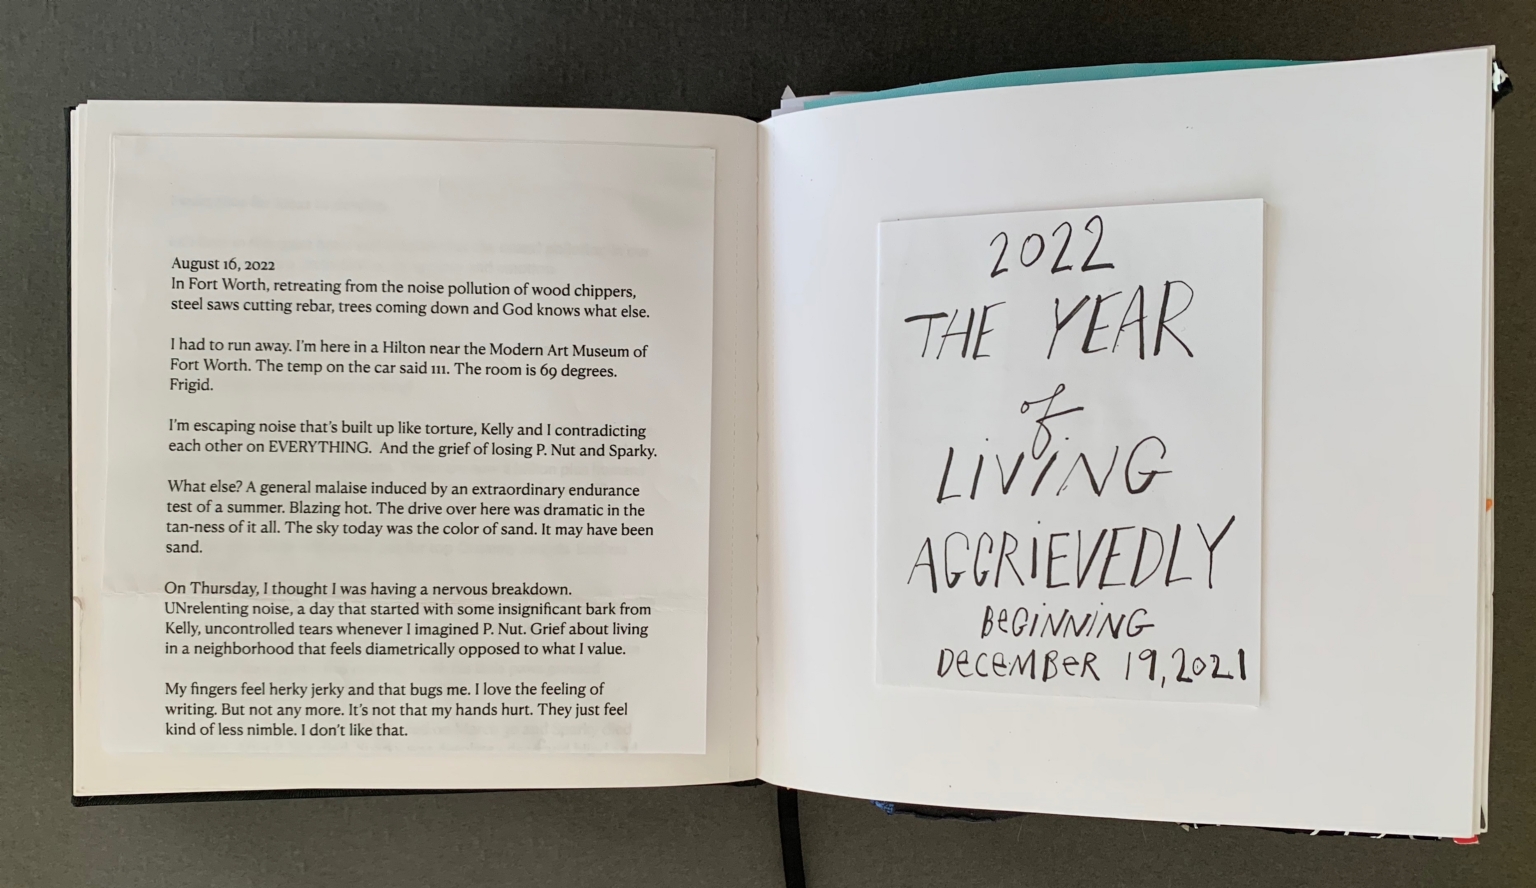 August 16, 2022
In Fort Worth, retreating from the noise pollution of wood chippers,
steel saws cutting rebar, trees coming down and God knows what else.
I had to run away. I'm here in a Hilton near the Modern Art Museum of
Fort Worth. The temp on the car said 111. The room is 69 degrees.
Frigid.
I'm escaping noise that's built up like torture, Kelly and I contradicting
each other on EVERYTHING.  And the grief of losing P. Nut and Sparky.
What else? A general malaise induced by an extraordinary endurance
test of a summer. Blazing hot. The drive over here was dramatic in the
tan-ness of it all. The sky today was the color of sand. It may have been
sand.
On Thursday, I thought I was having a nervous breakdown.
UNrelenting noise, a day that started with some insignificant bark from
Kelly, uncontrolled tears whenever I imagined P. Nut. Grief about living
in a neighborhood that feels diametrically opposed to what I value.
My fingers feel herky jerky and that bugs me. I love the feeling of
writing. But not any more. It's not that my hands hurt. They just feel
kind of less nimble. I don't like that.
2022
THE YEAR
of
LIVING
AGGRIEVEDLY
BEGINNING
DECEMBER 19, 2021